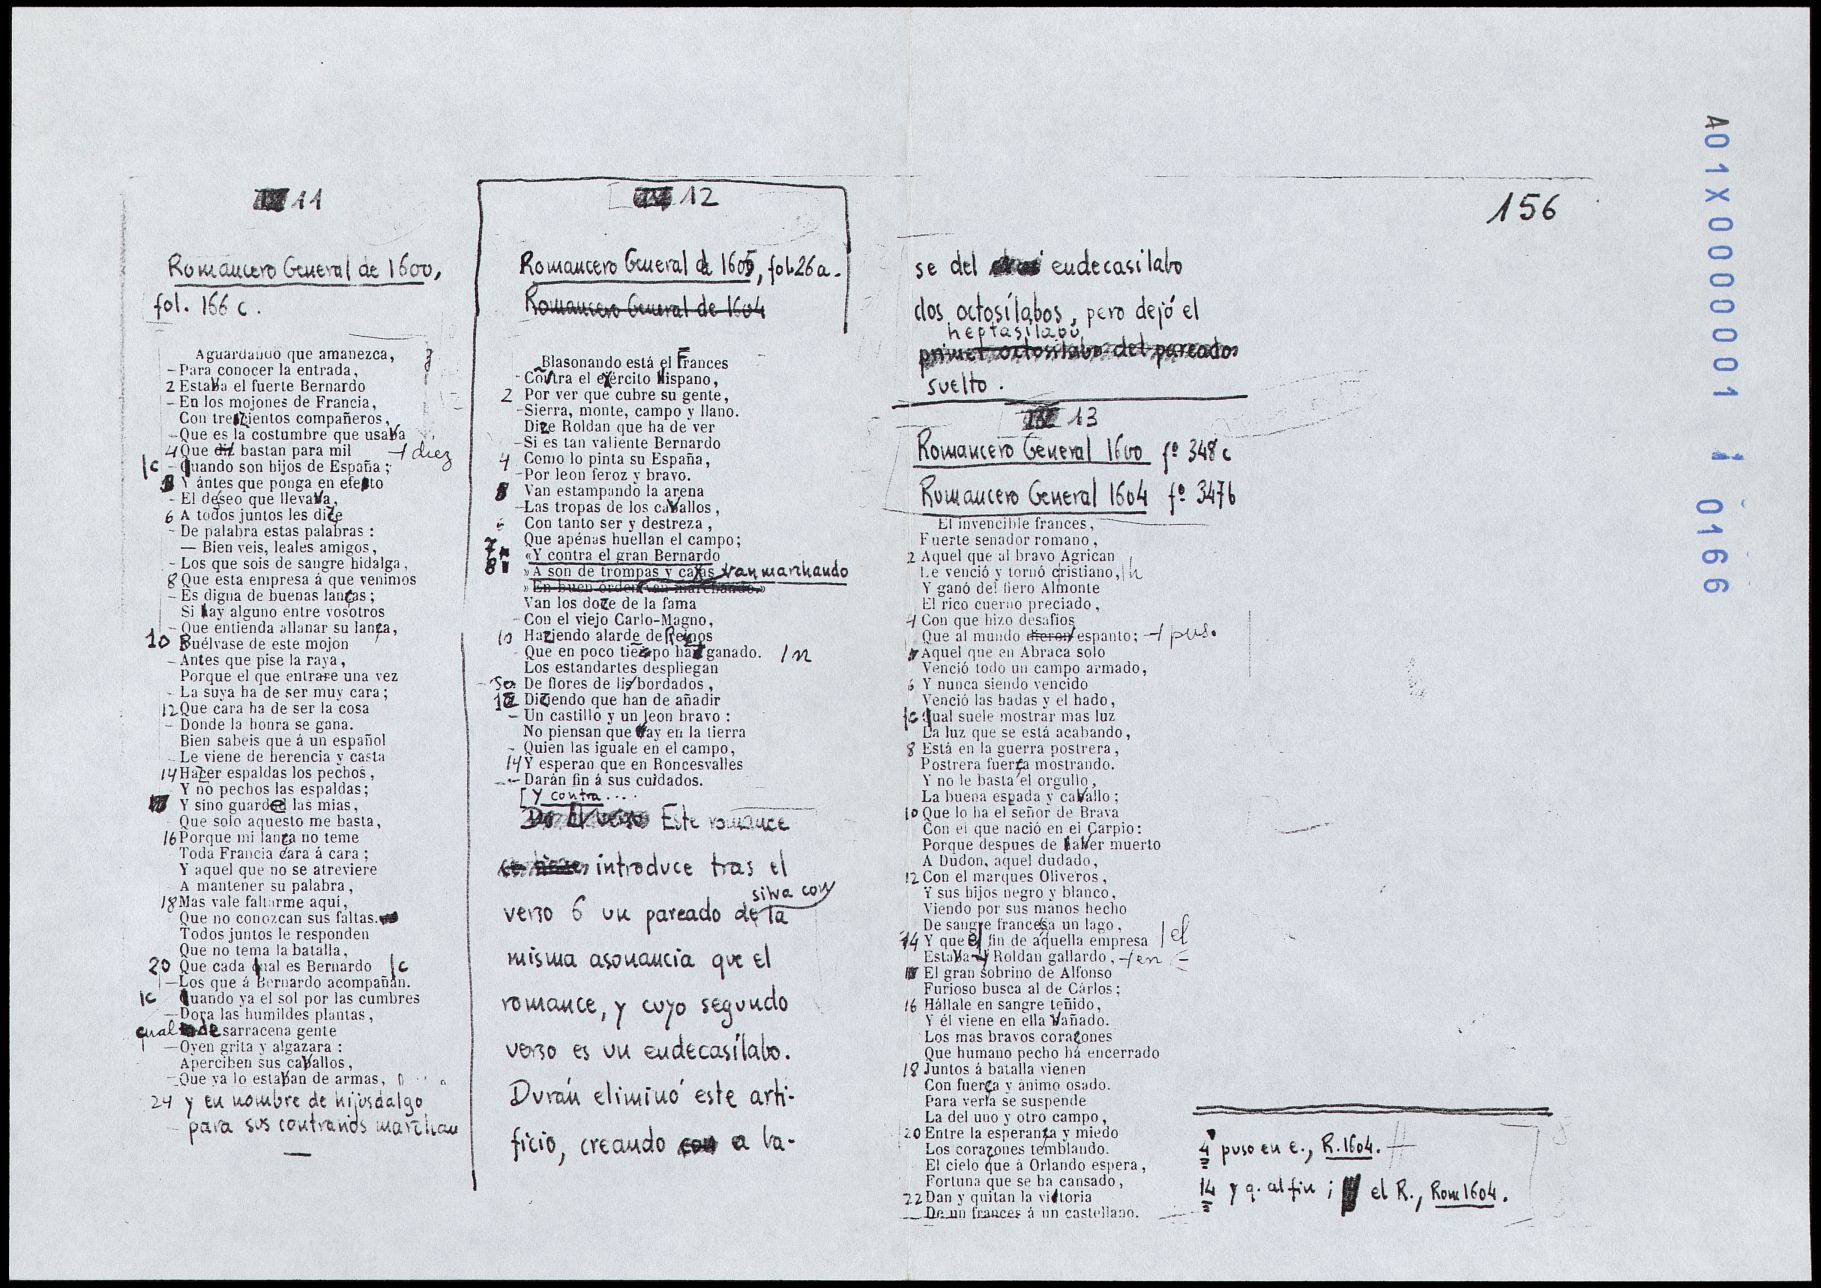 11
Romancero General de 1600,
fol. 166 c.
Aguardando que amanezca,
– Para conocer la entrada,
2 Estava el fuerte Bernardo
– En los mojones de Francia,
Con trezientos compañeros,
– Que es la costumbre que usava
4 Que dil bastan para mil ⊣ diez
|c – Quando son hijos de España;
Y ántes que ponga en efeto
– El deseo que llevava,
6 A todos juntos les dize
– De palabra estas palabras:
— Bien veis, leales amigos,
– Los que sois de sangre hidalga,
8 Que esta empresa á que venimos
– Es digna de buenas lanças;
Si hay alguno entre vosotros
– Que entienda allanar su lança,
10 Buélvase de este mojon
– Antes que pise la raya,
Porque el que entrare una vez
– La suya ha de ser muy cara;
12 Que cara ha de ser la cosa
– Donde la honra se gana.
Bien sabeis que á un español
Le viene de herencia y casta
14 Hazer espaldas los pechos,
Y no pechos las espaldas;
Y sino guarded las mias,
Que solo aquesto me basta,
16 Porque mi lança no teme
Toda Francia cara á cara;
Y aquel que no se atreviere
– A mantener su palabra,
18 Mas vale faltarme aquí,
Que no conozcan sus faltas.
Todos juntos le responden
Que no tema la batalla,
20 Que cada qual es Bernardo |c
– Los que á Bernardo acompañan.
|c Quando ya el sol por las cumbres
– Dora las humildes plantas,
qual de sarracena gente
– Oyen grita y algazara:
Aperciben sus cavallos,
– Que ya lo estaban de armas,
24 y en nombre de hijosdalgo
– para sus contrarios marchan
—
12
Romancero General de 1605, fol. 26 a.
Romancero General de 1604
Blasonando está el Frances
– Contra el exército Hispano,
2 Por ver que cubre su gente,
– Sierra, monte, campo y llano.
Dize Roldan que ha de ver
– Si es tan valiente Bernardo
4 Como lo pinta su España,
– Por leon feroz y bravo.
Van estampando la arena
– Las tropas de los cavallos,
6 Con tanto ser y destreza,
Que apénas huellan el campo;
7 «Y contra el gran Bernardo
8 » A son de trompas y caxas van marchando
» En buen órden van marchando.»
Van los doze de la fama
– Con el viejo Carlo-Magno,
10 Haziendo alarde de Reinos
– Que en poco tiempo han ganado. /n
Los estandartes despliegan
– De flores de lis bordados,
12 Diziendo que han de añadir
– Un castillo y un leon bravo:
No piensan que hay en la tierra
– Quien las iguale en el campo,
14 Y esperan que en Roncesvalles
– Darán fin á sus cuidados.
[Y contra....
Este romance
introduce tras el
verso 6 un pareado de la silva con
misma asonancia que el
romance, y cuyo segundo
verso es un endecasílabo.
Durán eliminó este arti-
ficio, creando con a ba-
156
se del endecasílabo
dos octosílabos, pero dejó el
heptasílabo
primer octosílabo del pareado
suelto.
13
Romancero General 1600 fº 348 c
Romancero General 1604 fº 347b
El invencible frances,
Fuerte senador romano,
2 Aquel que al bravo Agrican
Le venció y tornó cristiano, |h
Y ganó del fiero Almonte
El rico cuerno preciado,
4 Con que hizo desafios
Que al mundo dieron espanto; ⊣ puso
Aquel que en Abraca solo
Venció todo un campo armado,
6 Y nunca siendo vencido
Venció las hadas y el hado,
|c Qual suele mostrar mas luz
La luz que se está acabando,
8 Está en la guerra postrera,
Postrera fuerça mostrando.
Y no le basta el orgullo,
La buena espada y cavallo;
10 Que lo ha el señor de Brava
Con el que nació en el Carpio:
Porque despues de haver muerto
A Dudon, aquel dudado,
12 Con el marques Oliveros,
Y sus hijos negro y blanco,
Viendo por sus manos hecho
De sangre francesa un lago,
14 Y que el fin de aquella empresa |el
Estava y Roldan gallardo, ⊣ en
El gran sobrino de Alfonso
Furioso busca al de Cárlos;
16 Hállale en sangre teñido,
Y él viene en ella vañado.
Los mas bravos coraçones
Que humano pecho há encerrado
18 Juntos á batalla vienen
Con fuerça y ánimo osado.
Para verla se suspende
La del uno y otro campo,
20 Entre la esperança y miedo
Los coraçones temblando.
El cielo que á Orlando espera,
Fortuna que se ha cansado,
22 Dan y quitan la vitoria
De un frances á un castellano.
4 puso en e., R. 1604.
14 y q. al fin; el R., Rom 1604.
A01X0000001 1 0166